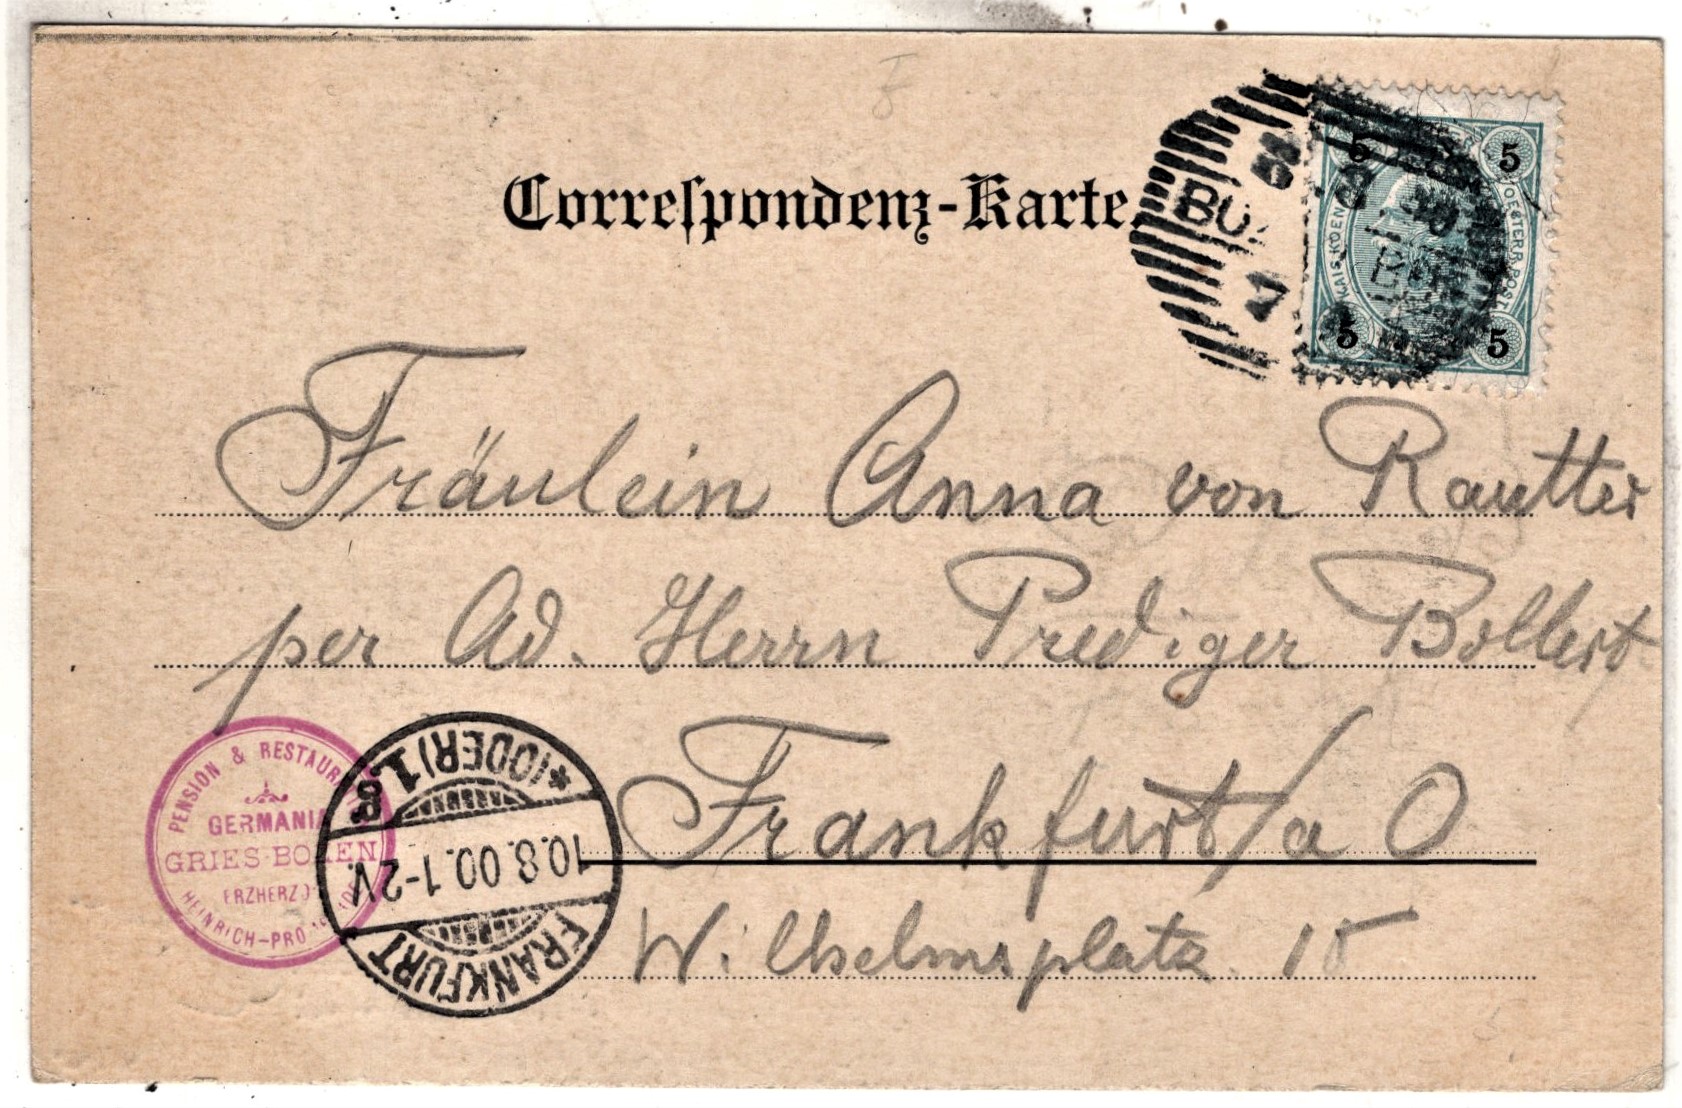 Correspondenz-Karte.
5 5
KAIS KOEN OESTERR POST
5 5
BO
8
7
Fräulein Anna von Rautter
per Ad. Herrn Prediger Bollert
Frankfurt/a O
Wilhelmsplatz 15
PENSION & RESTAUR
GERMANIA
GRIES-BOZEN
ERZHERZ
HEINRICH-PRO
FRANKFURT
10.8.00.1-2V.
*(ODER)1.